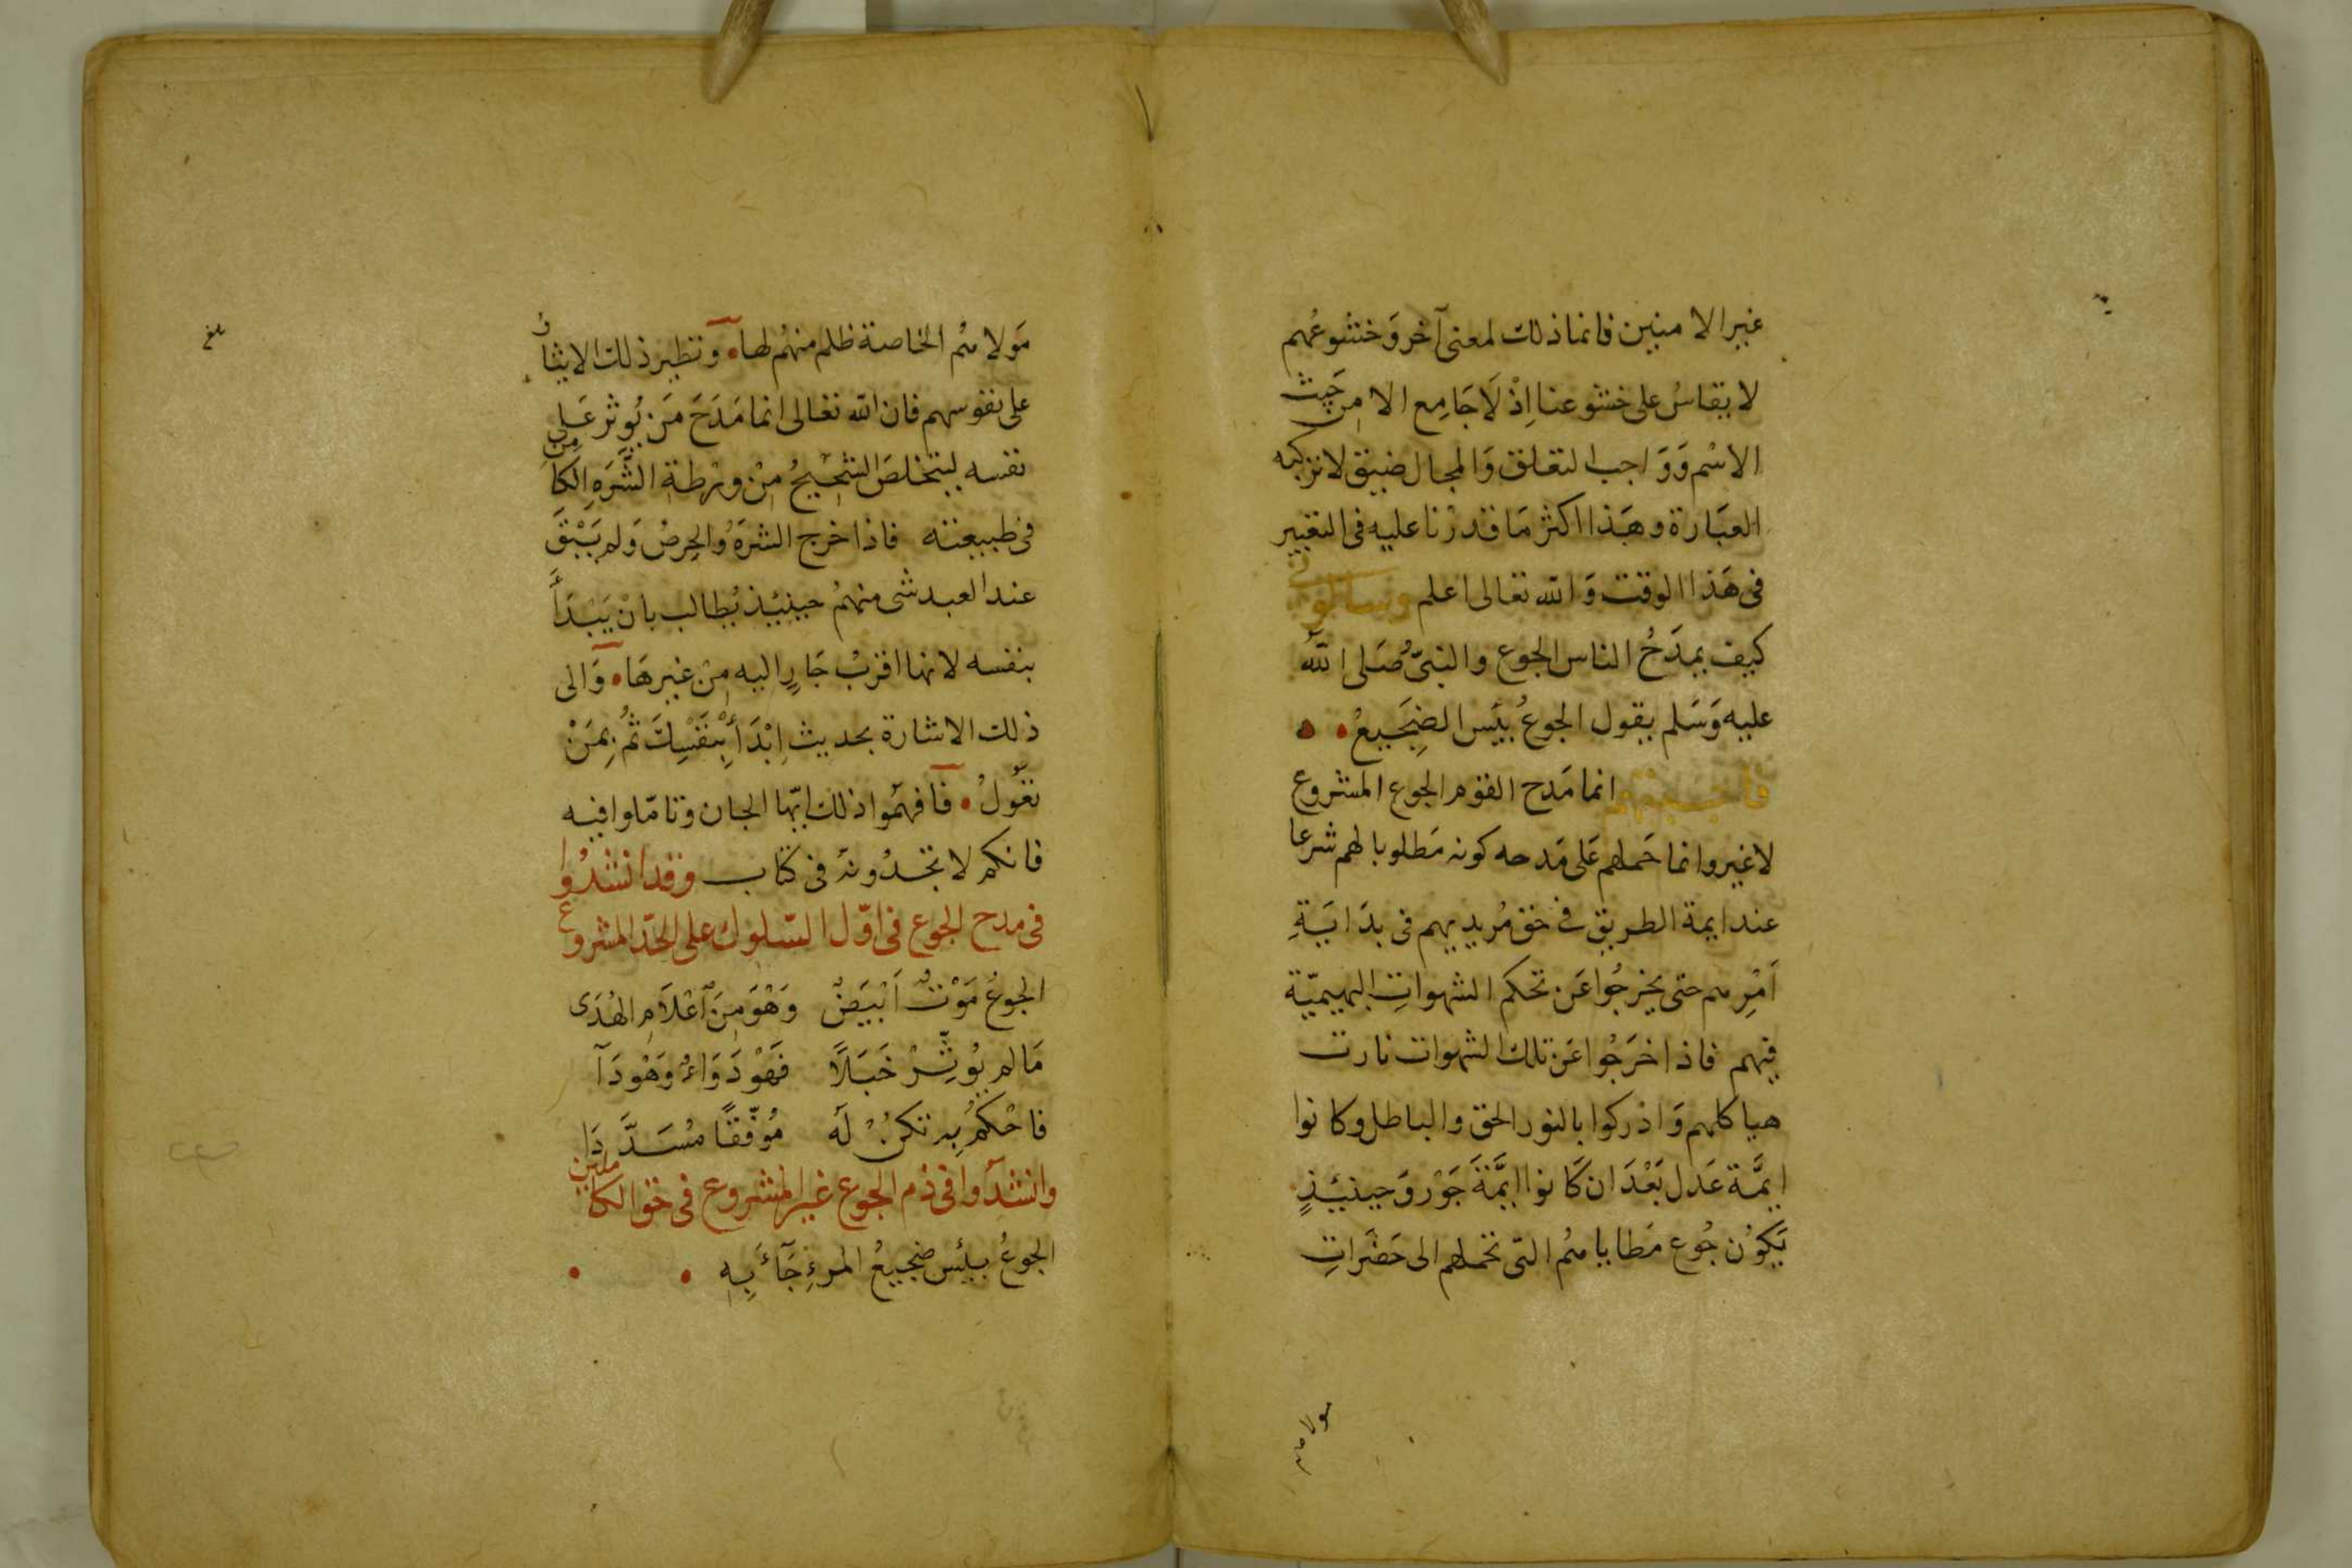 غير الامنين فانما ذلك لمعنى آخر وَخشُوعُهم
لا يقاسُ على خشوعنا اِذْ لَا جَامِع الا مِن حَيث
الاسْم وَوَاجب التعلق وَالمجال ضيق لا تزكيه
العبَارة وهَذا اكثر مَا قدرْنا عليه في التغيير
في هَذا الوقت وَالله تعالى اعلم وسالونى
كيف يمدَحُ الناس الجوع والنبىُّ صَلى الله
عليه وَسَلم يقول الجوعُ بئسَ الضِجَيعُ
فاجبتهم انما مَدح القوم الجوع المشروع
لا غير وانما حَملهم عَلى مَدحه كونه مَطلوبا لهم شرعا
عند ايمة الطريق في حق مُريديهم في بدَايَةِ
اَمْرِهم حتى يخرجُوا عَن تحكم الشهواتِ البهيميّة
فيهم فاذا خرَجُوا عَن تلك الشهوات نارت
هياكلهم وَادْركوا بالنور الحق والباطل وكانوا
ايمَّة عَدل بَعْدَ ان كَانوا ايمَّةَ جَوْر وَحينيئذٍ
يَكوُن جُوع مَطاياهُم التى تحملهم الى حَضَراتِ
مولاهم
مَولاهُم الخاصة ظلم منهُم لها وَنظير ذلك الايثارُ
على نفوسهم فان الله تعَالى انما مَدَحَ مَن يُوثر عَلى
نفسه ليتخلصَ الشحِيحُ مِنْ ورْطة الشَّرَهِ الكَامِن
في طبيعته فاذا خرج الشرَهُ وَالحِرصُ وَلم يَبْقَ
عند العبد شى منهمُ حينيئذ يُطالب بانْ يَبْدَأَ
بنفسه لانها اقربْ جَارٍ اليه مِنْ غيرهَا وَالى
ذلك الاشارة بحديث اِبْدَأْ بِنَفْسِكَ ثُم بِمَنْ
تعُولُ فافهمُوا ذلك ايّها الجان وتامّلوا فيه
فانكم لا تجدُونهُ في كتاب وقد انشدُوا
في مدح الجوع في اوّل السّلوك على الحّد المشروع
الجوعُ مَوْتٌ اَبْيَضٌ وَهْوَ مِنَ اَعْلَامِ الهُدَى
مَا لم يُوثِّرْ خَبَلًا فَهْوَ دَوَاءٌ وَهْوَ دَآ
فاحْكُمْ بِه تكنْ لَه مُوَفّقًا مسَدَّدَا
وانشدوا في ذم الجوع غير المشروع في حق الكاملين
الجوعُ بيئس ضجيعُ المرءِ جَآءَ بِهِ
بلغ